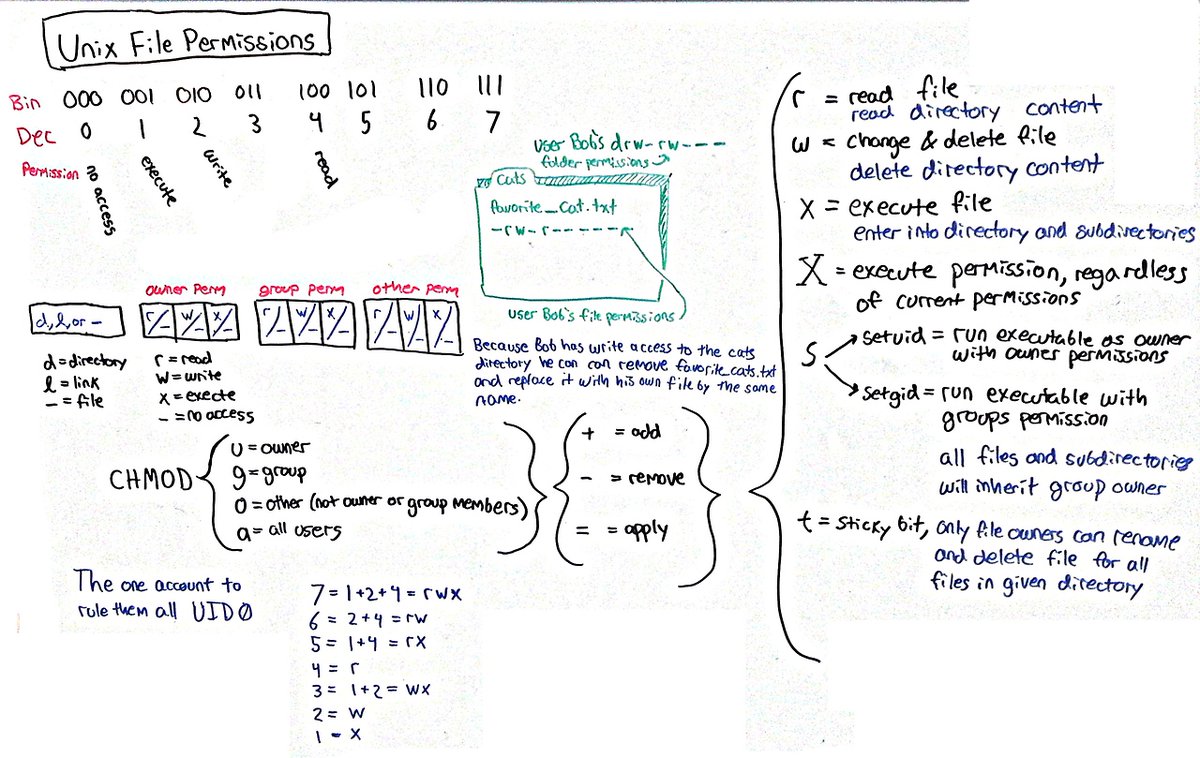 Unix File Permissions
Bin 000 001 010 011 100 101 110 111
Dec 0 1 2 3 4 5 6 7
Permission no access execute write read
user Bob's drw-rw----
folder permissions
Cats
favorite_cat.txt
-rw-r------
user Bob's file permissions
Because Bob has write access to the cats
directory he can can remove favorite_cats.txt
and replace it with his own file by the same
name.
owner perm group perm other perm
d,l,or - r/- w/- x/- r/- w/- x/- r/- w/- x/-
d = directory
l = link
- = file
r = read
w = write
x = execte
- = no access
CHMOD
u = owner
g = group
o = other (not owner or group members)
a = all users
+ = add
- = remove
= = apply
r = read file
read directory content
w = change & delete file
delete directory content
x = execute file
enter into directory and subdirectories
X = execute permission, regardless
of current permissions
S
setuid = run executable as owner
with owner permissions
setgid = run executable with
groups permission
all files and subdirectories
will inherit group owner
t = sticky bit, only file owners can rename
and delete file for all
files in given directory
The one account to
rule them all UID0
7 = 1+2+4 = rwx
6 = 2+4 = rw
5 = 1+4 = rx
4 = r
3 = 1+2 = wx
2 = w
1 - x